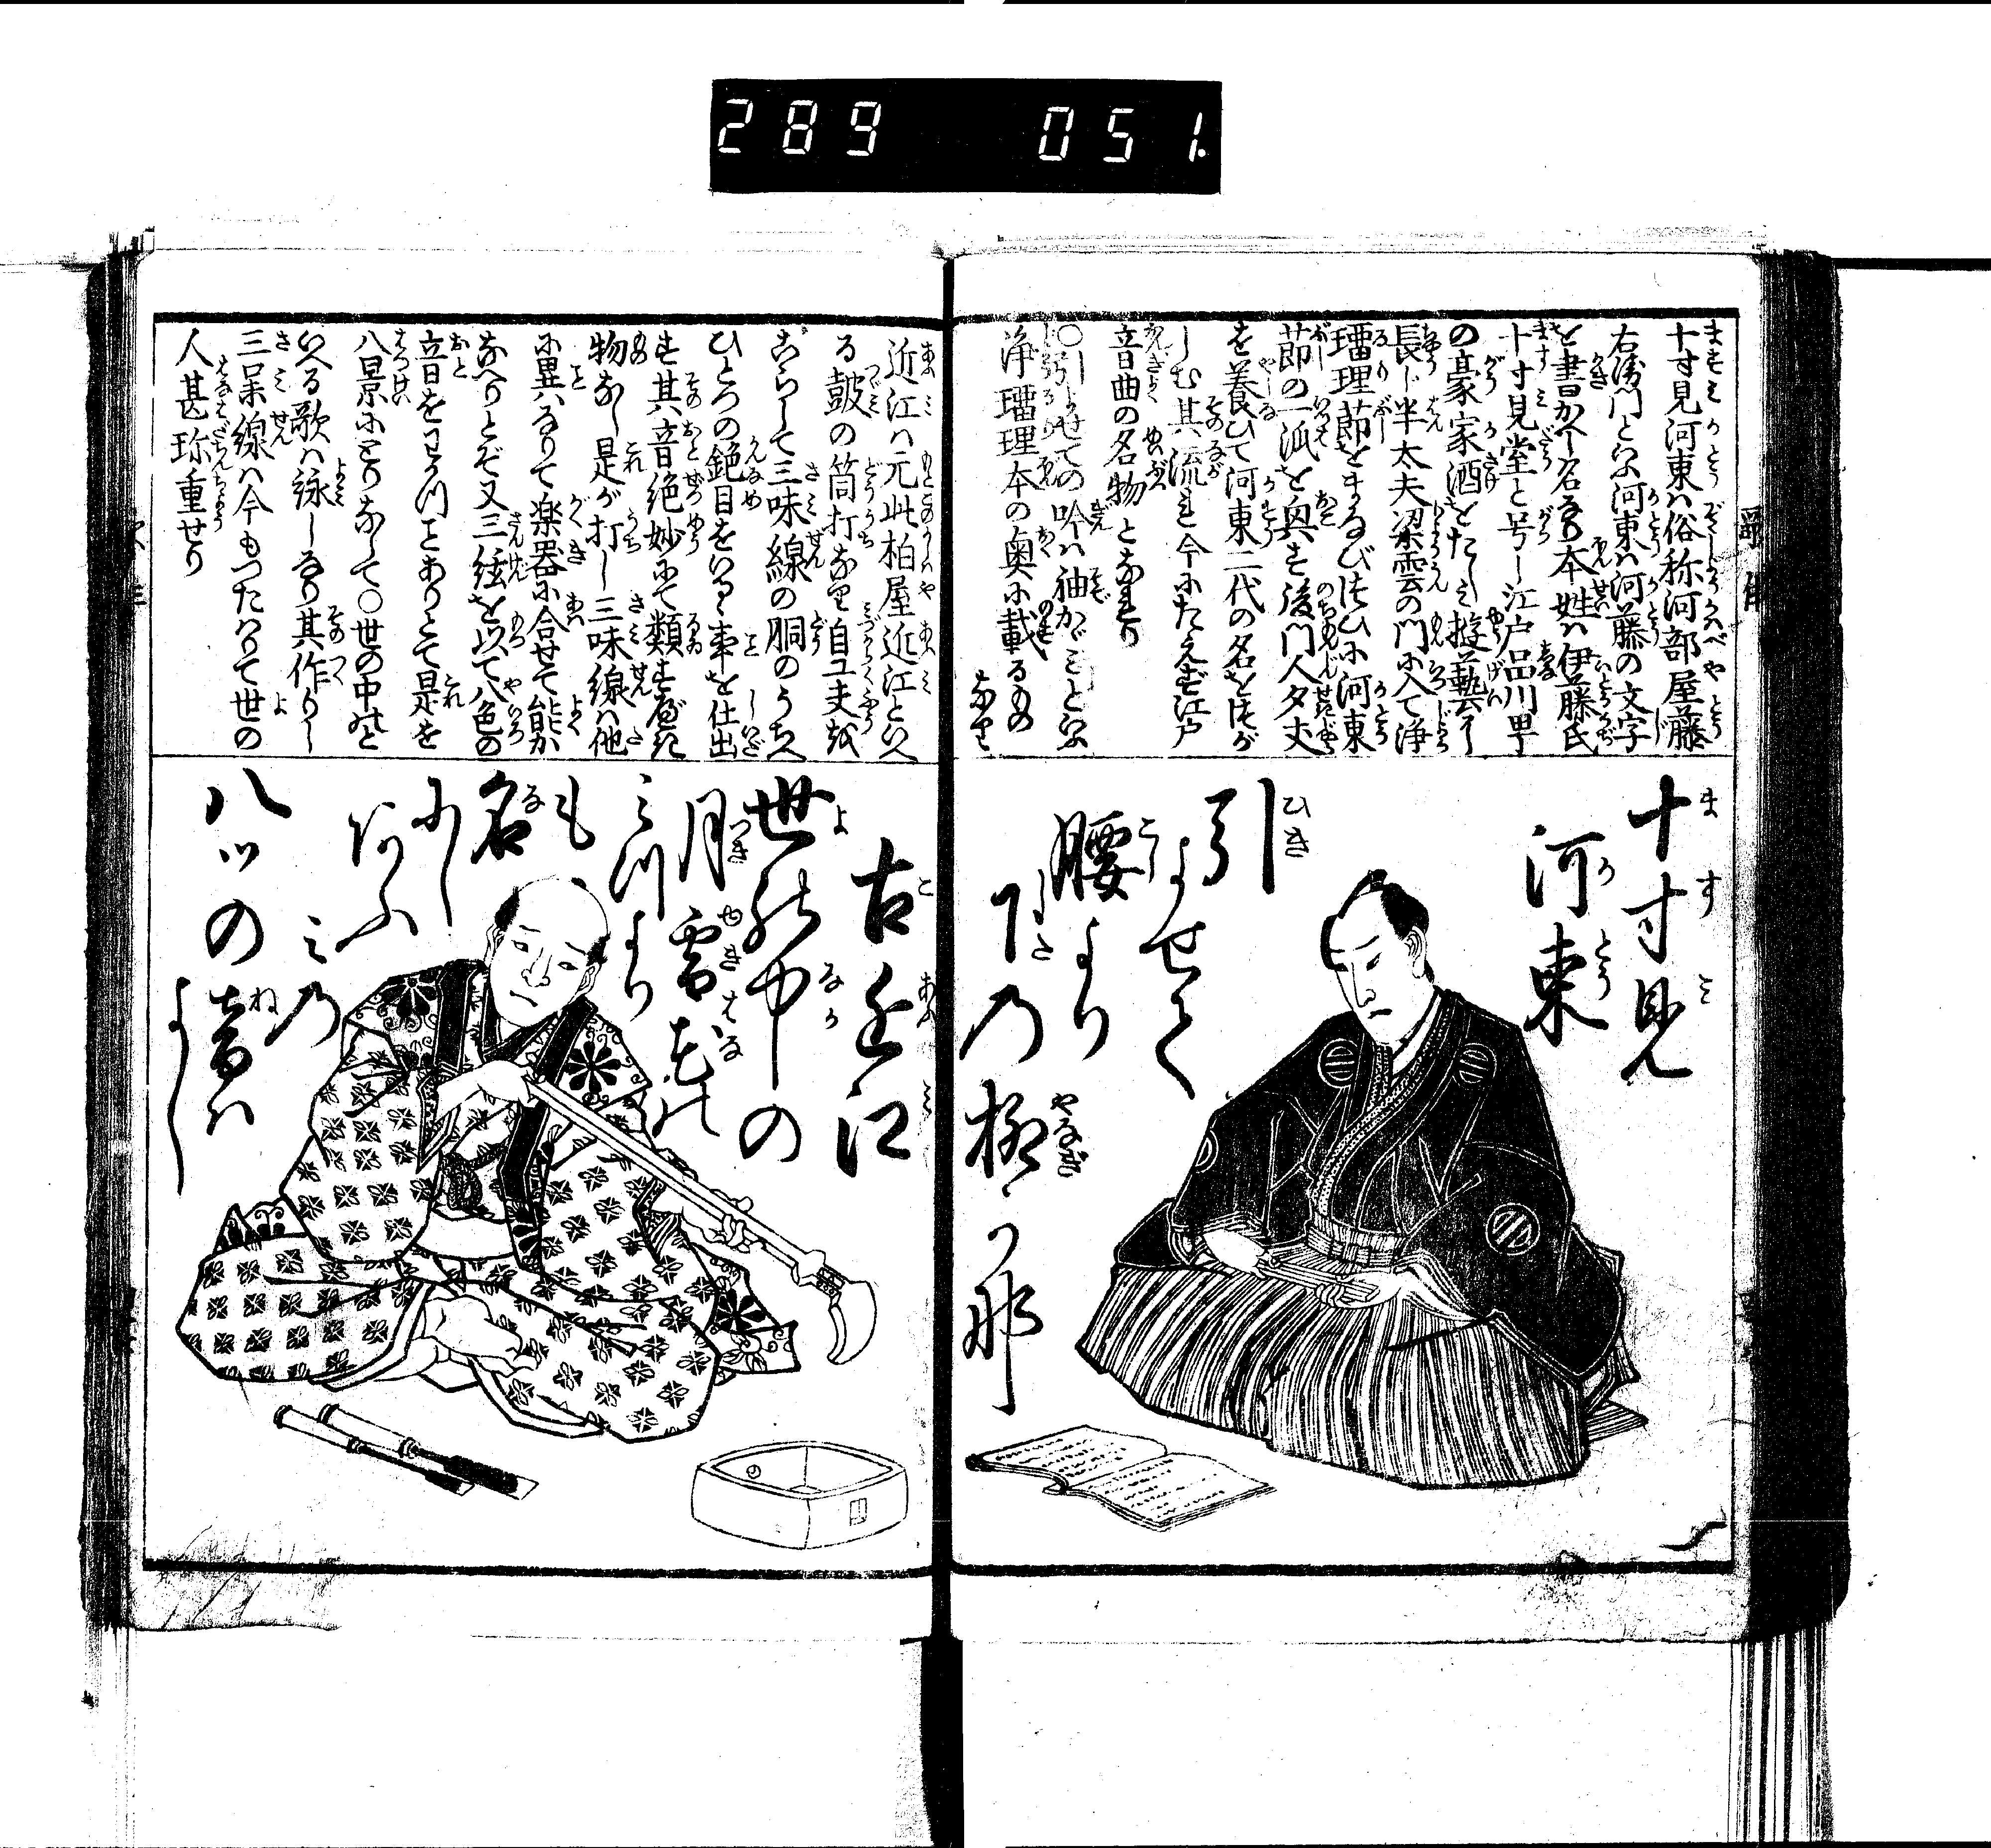 289 051
十寸見河東ハ俗称河部屋藤
右衛門といふ河東ハ河藤の文字
を書かへし名なり本姓ハ伊藤氏
十寸見堂と号し江戸品川町
の豪家家酒をたしみ遊藝に
長じ半太夫梁雲の門に入て浄
瑠理節をまなびつひに河東
節の一派を興す後門人夕丈
を養ひて河東二代の名をつが
しむ其流れ今にたえず江戸
音曲の名物となれり
〇引よせての吟ハ袖かゞみといふ
浄瑠理本の奥に載るもの
なり
十寸見
河東
引
よせて
腰より
下の柳
かな
近江ハ元此柏屋近江といへ
る鼓の筒打なり自工夫を
こらして三味線の胴のうちへ
ひとつの鉋目をいるゝ事を仕出
す其音絶妙にて類すべき
物なし是が打し三味線ハ他
に異なりて楽器に合せて能か
なへりとぞ又三絃を以て八色の
音をわかつことありとて是を
八景にとりなして〇世の中のと
いへる歌ハ詠しなり其作りし
三味線ハ今もつたハりて世の
人甚珍重せり
古近江
世の中の
月雪花の
みつより
も
名
にし
あふ
みの
八ツの音ハ
よし